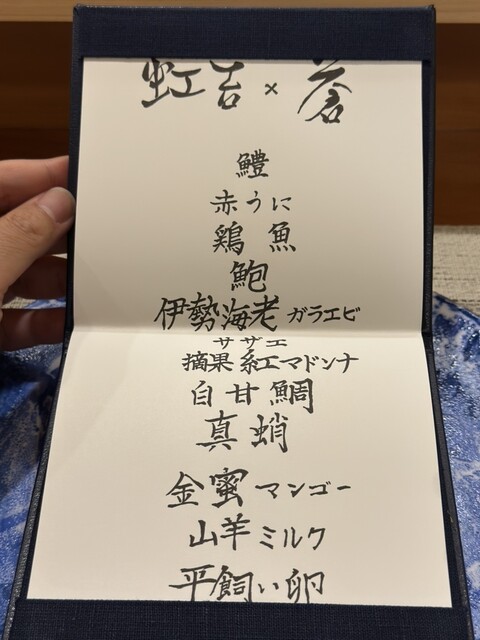 虹吉 × 蒼
鱧
赤うに
鶏 魚
鮑
伊勢海老 ガラエビ
サザエ
摘果 紅マドンナ
白甘鯛
真蛸
金蜜マンゴー
山羊ミルク
平飼い卵